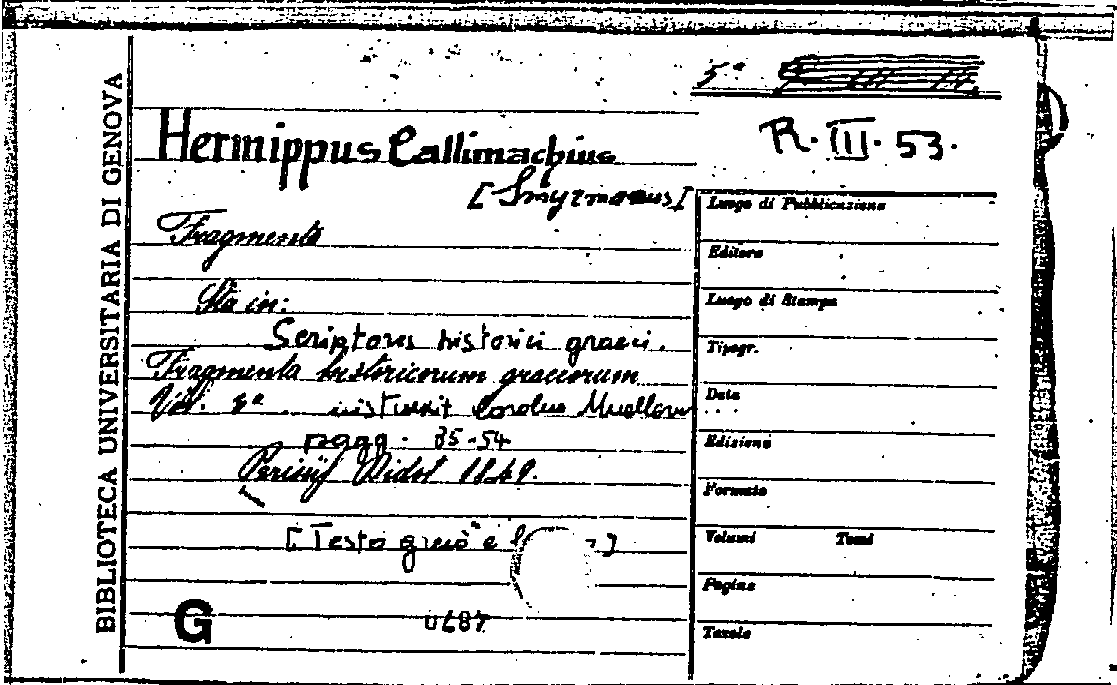 BIBLIOTECA UNIVERSITARIA DI GENOVA
5ª
R. III. 53.
Hermippus Callimachius
[Smyrnaeus]
Fragmenta
Sta in:
Scriptores historici graeci.
Fragmenta historicorum graecorum
Vol. 3º instruxit Carolus Muellerus
pagg. 35-54
Parisiis Didot 1849.
[Testo greco e
G
Luogo di Pubblicazione
Editore
Luogo di Stampa
Tipogr.
Data
Edizione
Formato
Volumi Tomi
Pagine
Tavole